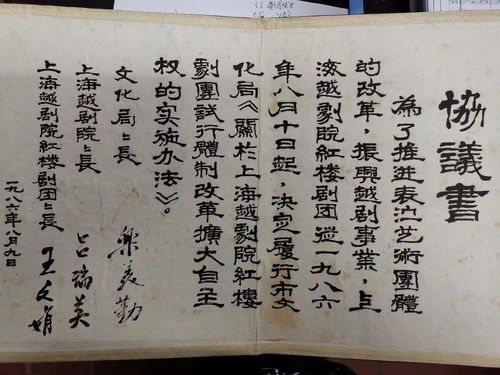 協議書
為了推进表演艺術團體
的改革，振興越剧事業，上
海越劇院紅楼剧团從一九八六
年八月十日起，决定履行市文
化局《關於上海越劇院紅樓
劇團試行體制改革擴大自主
权的实施办法》。
文化局々長 樂美勤
上海越剧院々長 吕瑞英
上海越剧院紅楼剧团々長 王文娟
一九八六年八月九日